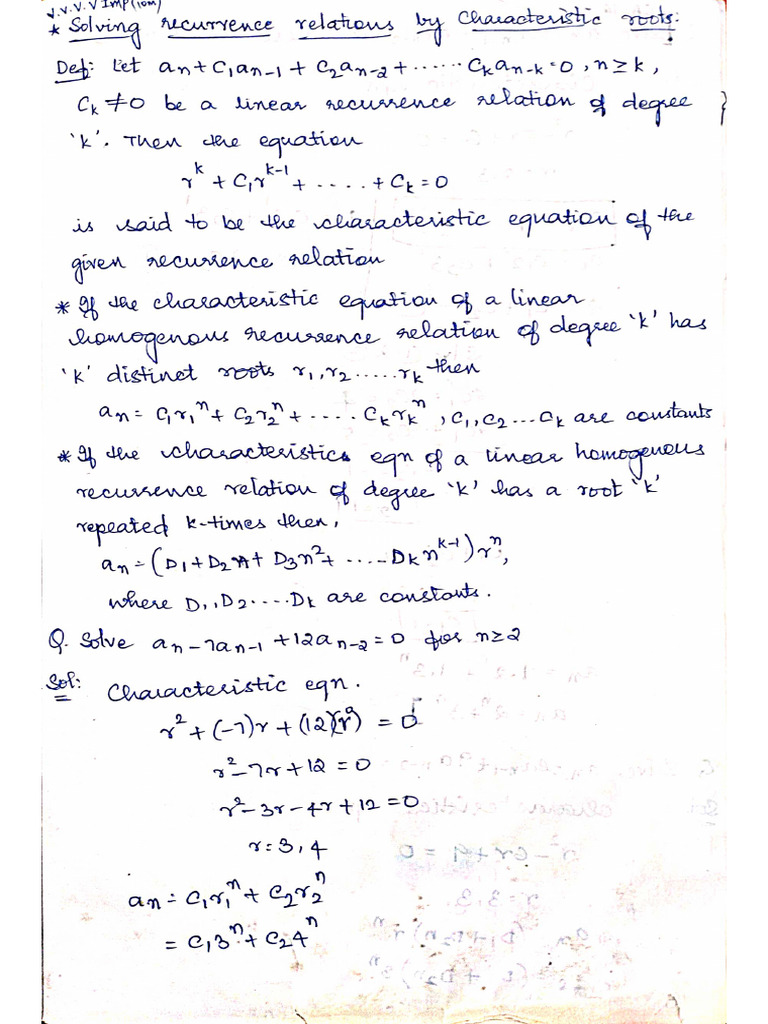 V.V.V.V IMP (10M)
* Solving recurrence relations by characteristic roots:
Def: Let an + C1an-1 + C2an-2 + ...... Ckan-k = 0, n ≥ k,
Ck ≠ 0 be a linear recurrence relation of degree
'k'. Then the equation
r^k + C1r^k-1 + ..... + Ck = 0
is said to be the characteristic equation of the
given recurrence relation
* If the characteristic equation of a linear
homogenous recurrence relation of degree 'k' has
'k' distinct roots r1, r2 ..... rk then
an = C1r1^n + C2r2^n + .... Ckrk^n, C1, C2 ... Ck are constants
* If the characteristics eqn of a linear homogenous
recurrence relation of degree 'k' has a root 'k'
repeated k-times then,
an = (D1 + D2n + D3n^2 + ..... Dkn^k-1) r^n,
where D1, D2 .... Dk are constants.
Q. Solve an - 7an-1 + 12an-2 = 0 for n ≥ 2
Sol: Characteristic eqn.
r^2 + (-7)r + (12)(r^0) = 0
r^2 - 7r + 12 = 0
r^2 - 3r - 4r + 12 = 0
r = 3, 4
an = C1r1^n + C2r2^n
= C1 3^n + C2 4^n